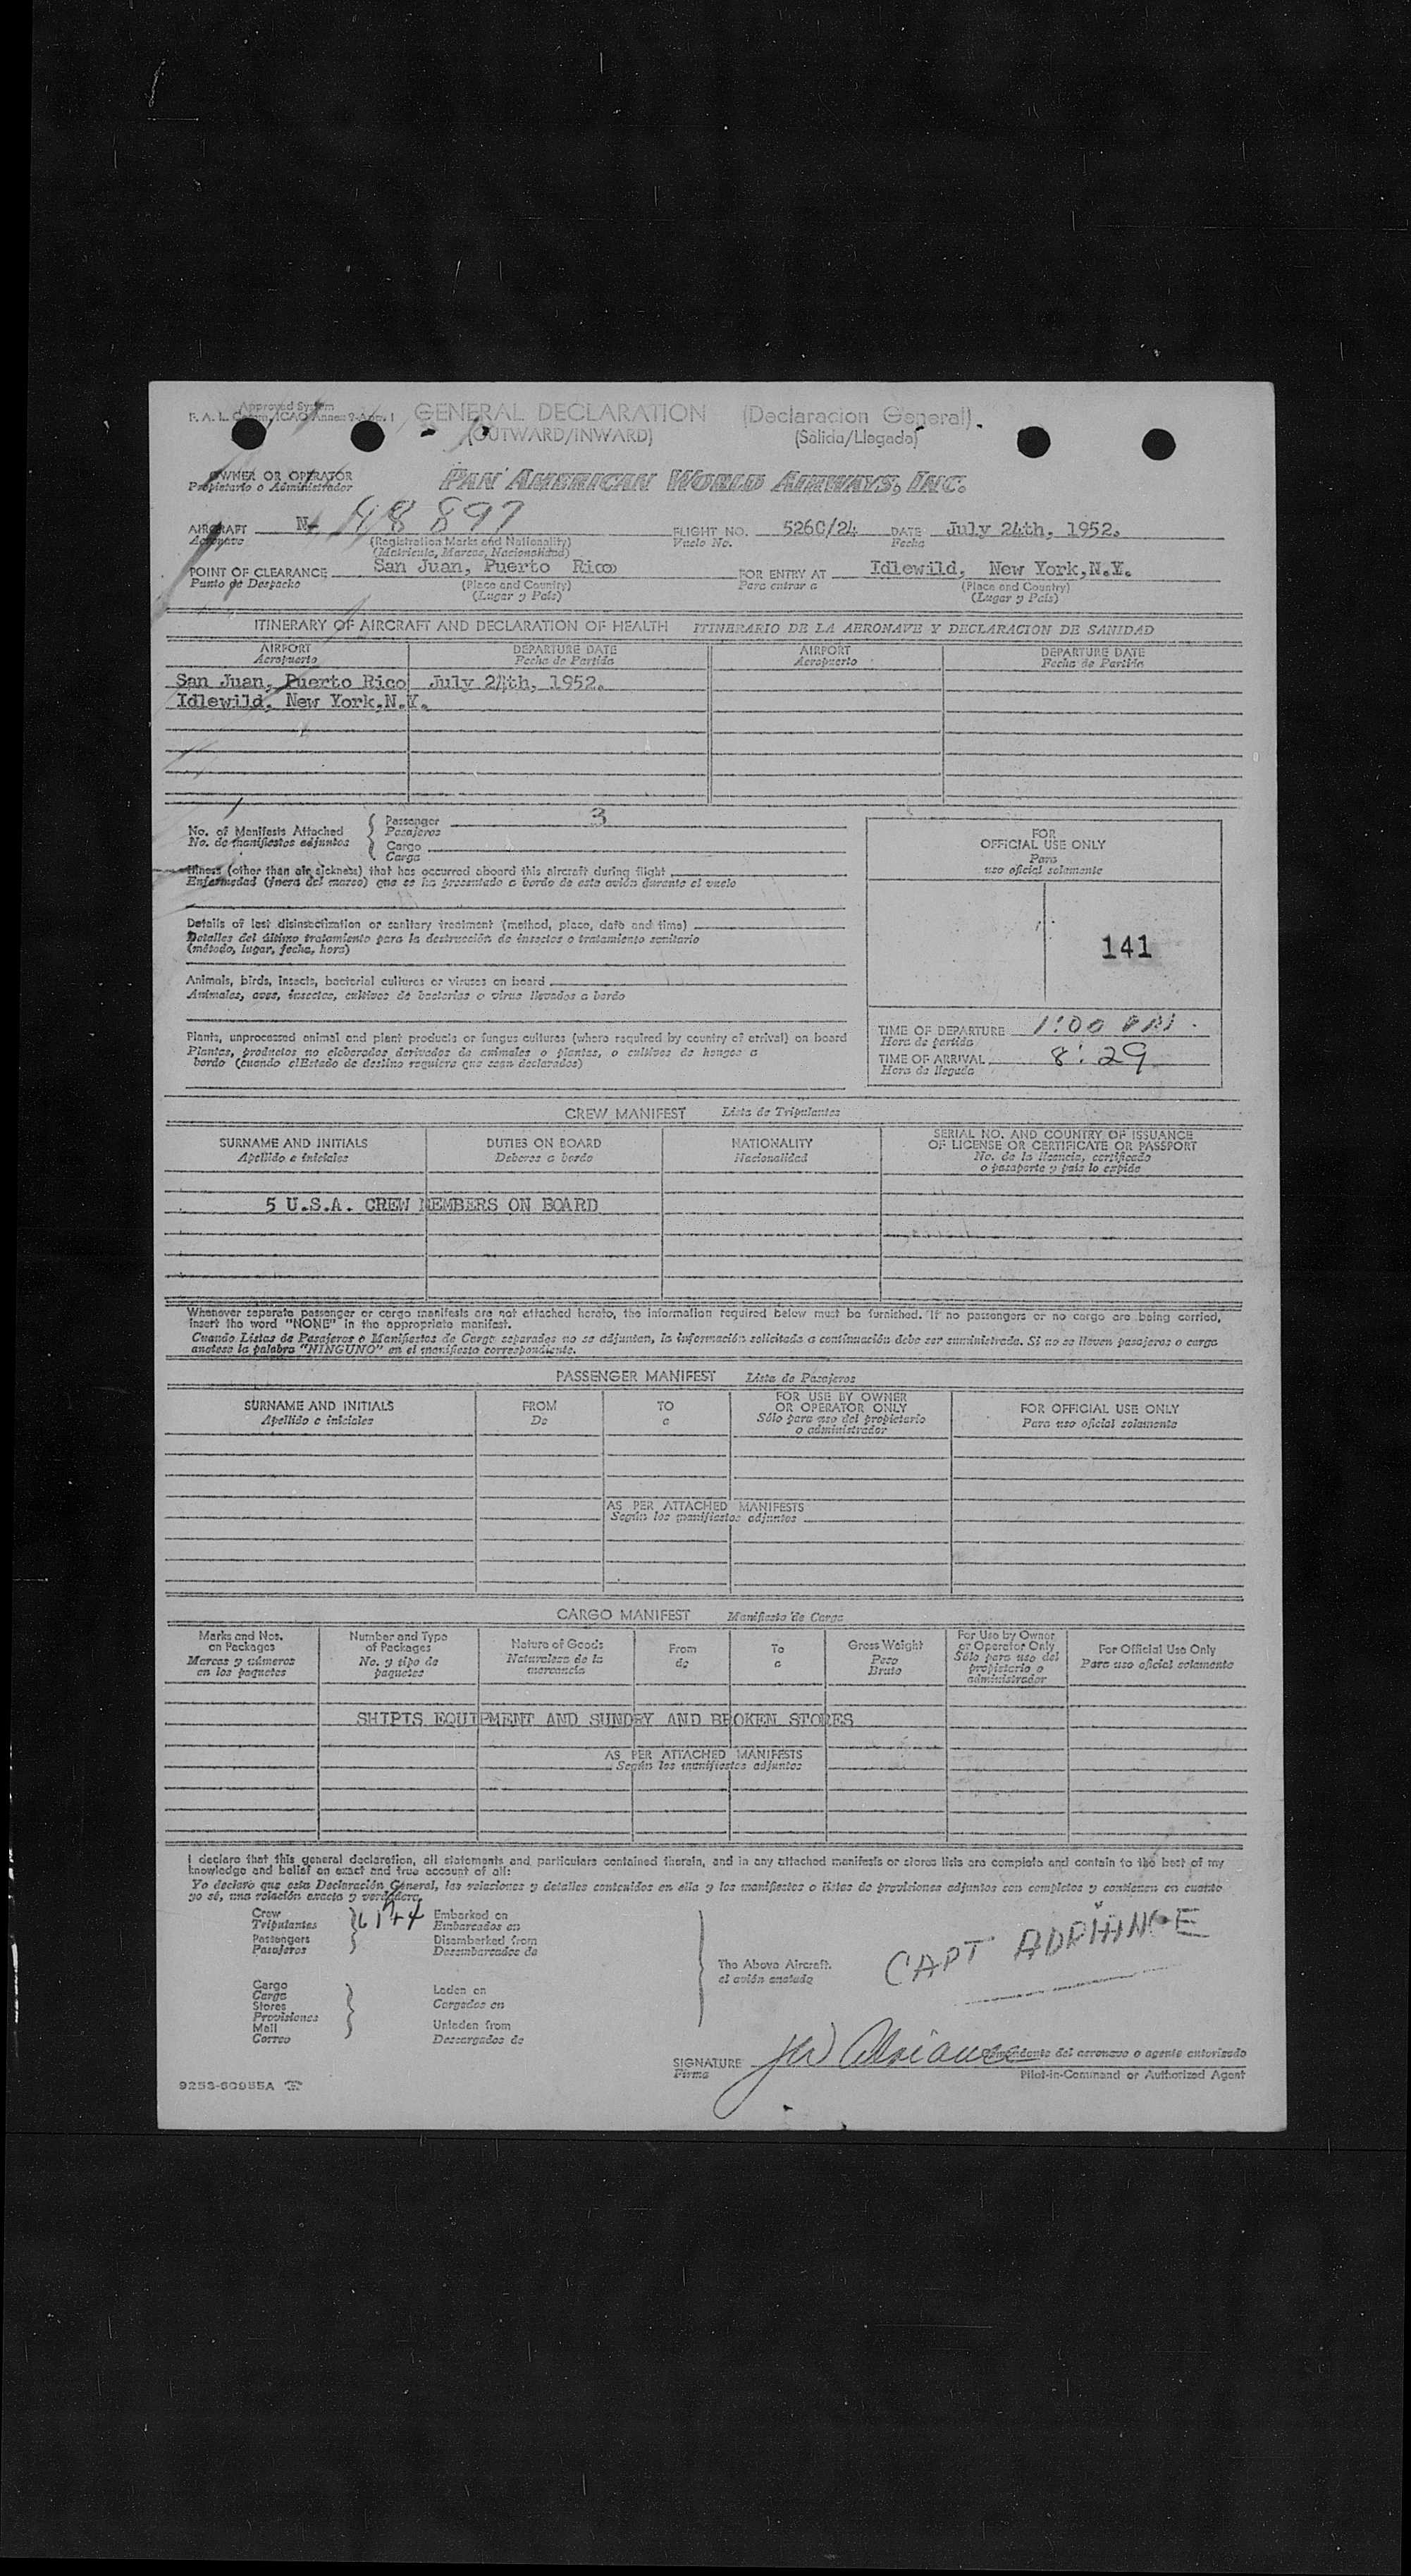 Approved System
F. A. L. Comm. ICAO Annex 9-App. 1
GENERAL DECLARATION (Declaracion General)
(OUTWARD/INWARD) (Salida/Llegada)
OWNER OR OPERATOR
Propietario o Administrador
PAN AMERICAN WORLD AIRWAYS, INC.
AIRCRAFT N- 48897 FLIGHT NO. 526C/24 DATE July 24th, 1952.
Aeronave (Registration Marks and Nationality) Vuelo No. Fecha
(Matricula, Marcas, Nacionalidad)
POINT OF CLEARANCE San Juan, Puerto Rico FOR ENTRY AT Idlewild, New York,N.Y.
Punto de Despacho (Place and Country) Para entrar a (Place and Country)
(Lugar y País) (Lugar y País)
ITINERARY OF AIRCRAFT AND DECLARATION OF HEALTH ITINERARIO DE LA AERONAVE Y DECLARACION DE SANIDAD
AIRPORT DEPARTURE DATE AIRPORT DEPARTURE DATE
Aeropuerto Fecha de Partida Aeropuerto Fecha de Partida
San Juan, Puerto Rico July 24th, 1952.
Idlewild, New York,N.Y.
No. of Manifests Attached
No. de manifiestos adjuntos
Passenger 3
Pasajeros
Cargo
Carga
Illness (other than air sickness) that has occurred aboard this aircraft during flight
Enfermedad (fuera del mareo) que se ha presentado a bordo de este avión durante el vuelo
Details of last disinsectization or sanitary treatment (method, place, date and time)
Detalles del último tratamiento para la destrucción de insectos o tratamiento sanitario
(método, lugar, fecha, hora)
Animals, birds, insects, bacterial cultures or viruses on board
Animales, aves, insectos, cultivos de bacterias o virus llevados a bordo
Plants, unprocessed animal and plant products or fungus cultures (where required by country of arrival) on board
Plantas, productos no elaborados derivados de animales o plantas, o cultivos de hongos a
bordo (cuando el Estado de destino requiera que sean declarados)
FOR
OFFICIAL USE ONLY
Para
uso oficial solamente
141
TIME OF DEPARTURE 1:00 PM.
Hora de partida
TIME OF ARRIVAL 8:29
Hora de llegada
CREW MANIFEST Lista de Tripulantes
SURNAME AND INITIALS DUTIES ON BOARD NATIONALITY SERIAL NO. AND COUNTRY OF ISSUANCE
OF LICENSE OR CERTIFICATE OR PASSPORT
Apellido e iniciales Deberes a bordo Nacionalidad No. de la licencia, certificado
o pasaporte y país lo expide
5 U.S.A. CREW MEMBERS ON BOARD
Whenever separate passenger or cargo manifests are not attached hereto, the information required below must be furnished. If no passengers or no cargo are being carried,
insert the word "NONE" in the appropriate manifest.
Cuando Listas de Pasajeros o Manifiestos de Carga separados no se adjuntan, la información solicitada a continuación debe ser suministrada. Si no se llevan pasajeros o carga
anotese la palabra "NINGUNO" en el manifiesto correspondiente.
PASSENGER MANIFEST Lista de Pasajeros
SURNAME AND INITIALS FROM TO FOR USE BY OWNER
OR OPERATOR ONLY FOR OFFICIAL USE ONLY
Apellido e iniciales De a Sólo para uso del propietario
o administrador Para uso oficial solamente
AS PER ATTACHED MANIFESTS
Según los manifiestos adjuntos
CARGO MANIFEST Manifiesto de Carga
Marks and Nos.
on Packages
Marcas y números
en los paquetes
Number and Type
of Packages
No. y tipo de
paquetes
Nature of Goods
Naturaleza de la
mercancía
From
de
To
a
Gross Weight
Peso
Bruto
For Use by Owner
or Operator Only
Sólo para uso del
propietario o
administrador
For Official Use Only
Para uso oficial solamente
SHIPTS EQUIPMENT AND SUNDRY AND BROKEN STORES
AS PER ATTACHED MANIFESTS
Según los manifiestos adjuntos
I declare that this general declaration, all statements and particulars contained therein, and in any attached manifests or stores lists are complete and contain to the best of my
knowledge and belief an exact and true account of all:
Yo declaro que esta Declaración General, las relaciones y detalles contenidos en ella y los manifiestos o listas de provisiones adjuntos son completos y contienen en cuanto
yo sé, una relación exacta y verdadera
Crew Embarked on
Tripulantes Embarcados en
Passengers Disembarked from
Pasajeros Desembarcados de
Cargo Laden on
Carga Cargados en
Stores
Provisiones
Mail Unladen from
Correo Descargados de
The Above Aircraft.
el avión anotado
CAPT ADRIANCE
SIGNATURE JW Adriance Comandante del aeronave o agente autorizado
Firma Pilot-in-Command or Authorized Agent
9253-60955A